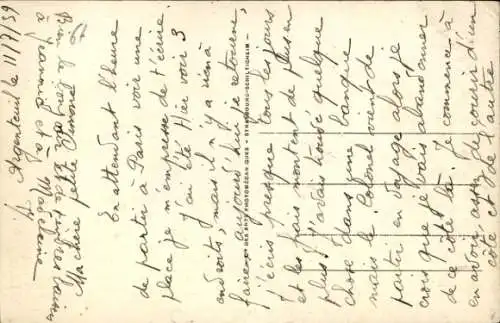 Argenteuil le 11/7/39
Ma chère petite Simone
En attendant l'heure
de partir à Paris voir une
place je m'empresse de t'écrire.
J'ai été hier voir 3
endroits, mais il n'y a rien à
faire, aujourd'hui je retourne,
j'écris presque tous les jours
et les frais montent de plus en
plus. J'avais trouvé quelque
chose dans une banque
mais le Colonel vient de
partir en voyage alors je
crois que je vais abandonner
de ce côté là. Je commence à
en avoir assez de courir d'un
côté et de l'autre
Bien le
à Jeannot et à Madeleine
STRASBOURG-SCHILTIGHEIM